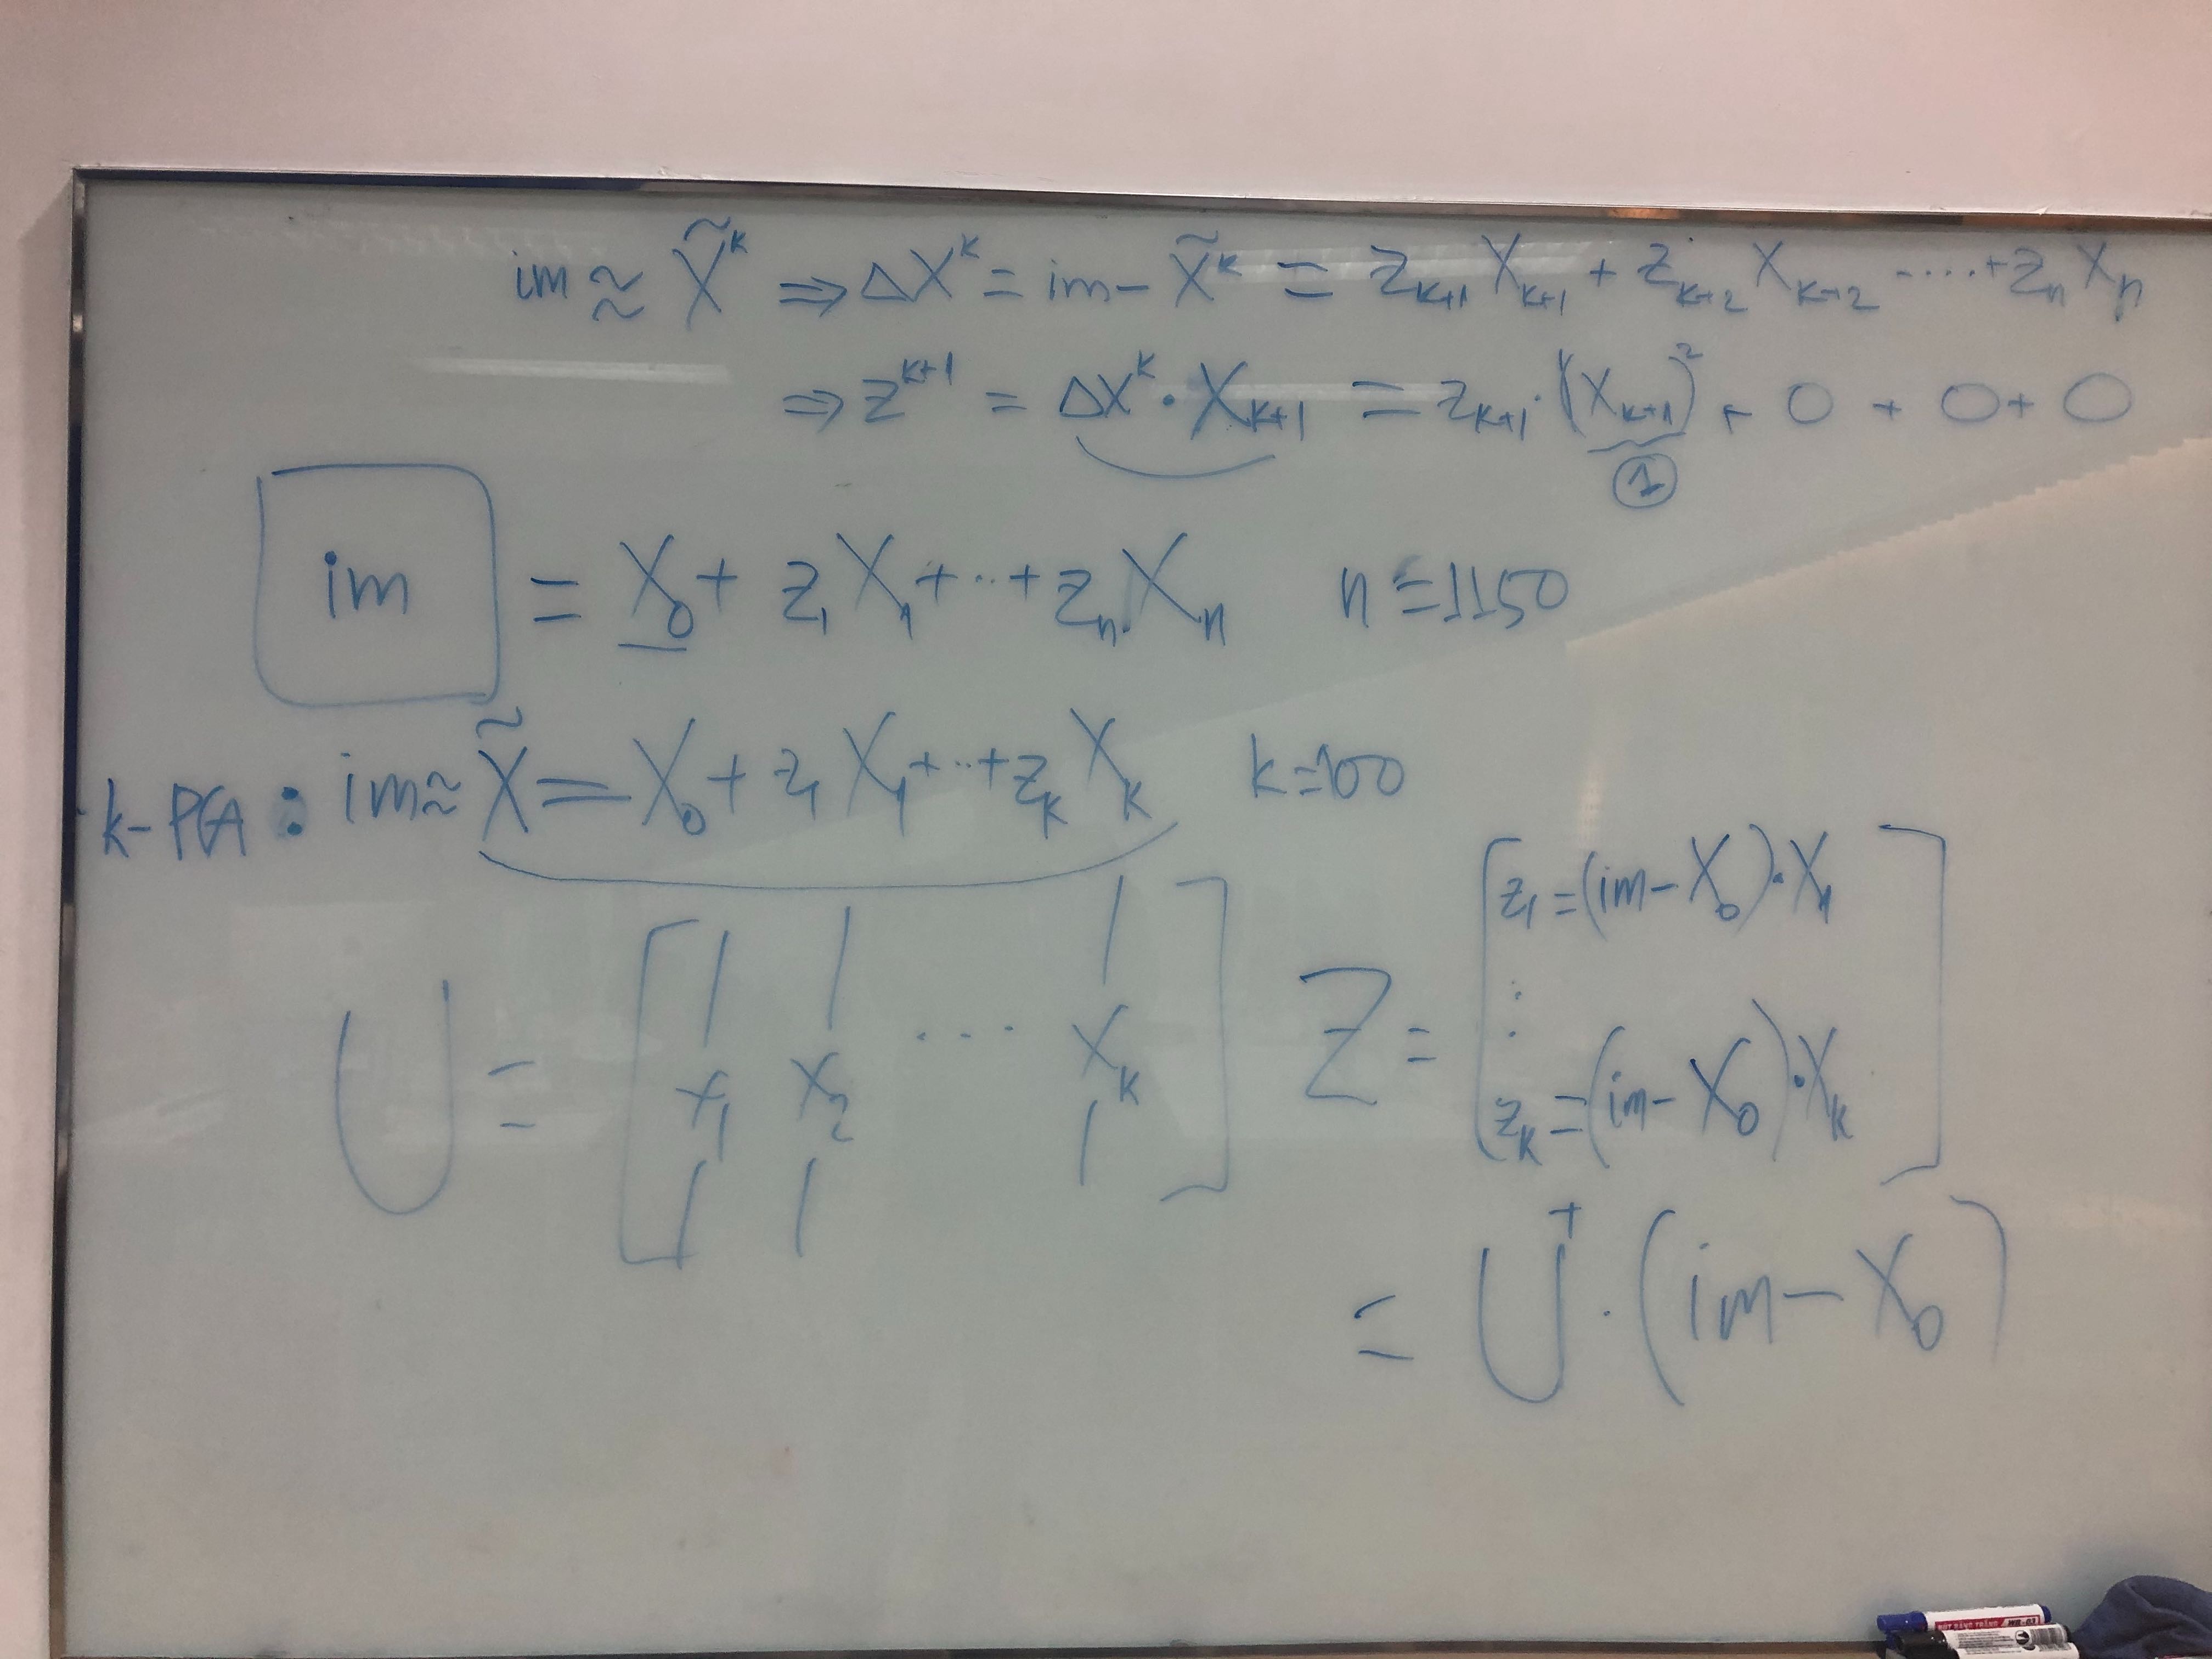 im ≈ X̃^k ⇒ ΔX^k = im − X̃^k = z_{k+1} X_{k+1} + z_{k+2} X_{k+2} ·····+ z_n X_n
⇒ z^{k+1} = ΔX^k · X_{k+1} = z_{k+1} · (X_{k+1})² + 0 + 0 + 0
1
im = X_0 + z_1 X_1 + ··· + z_n X_n n = 1150
k-PCA : im ≈ X̃ = X_0 + z_1 X_1 + ··· + z_k X_k k = 100
U = [ x_1 x_2 ···· x_k ] Z = [ z_1 = (im − X_0) · X_1
⋮
z_k = (im − X_0) · X_k ]
= U^T · (im − X_0)
WB-03